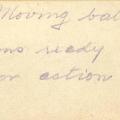 Moving bal
ns ready
or action